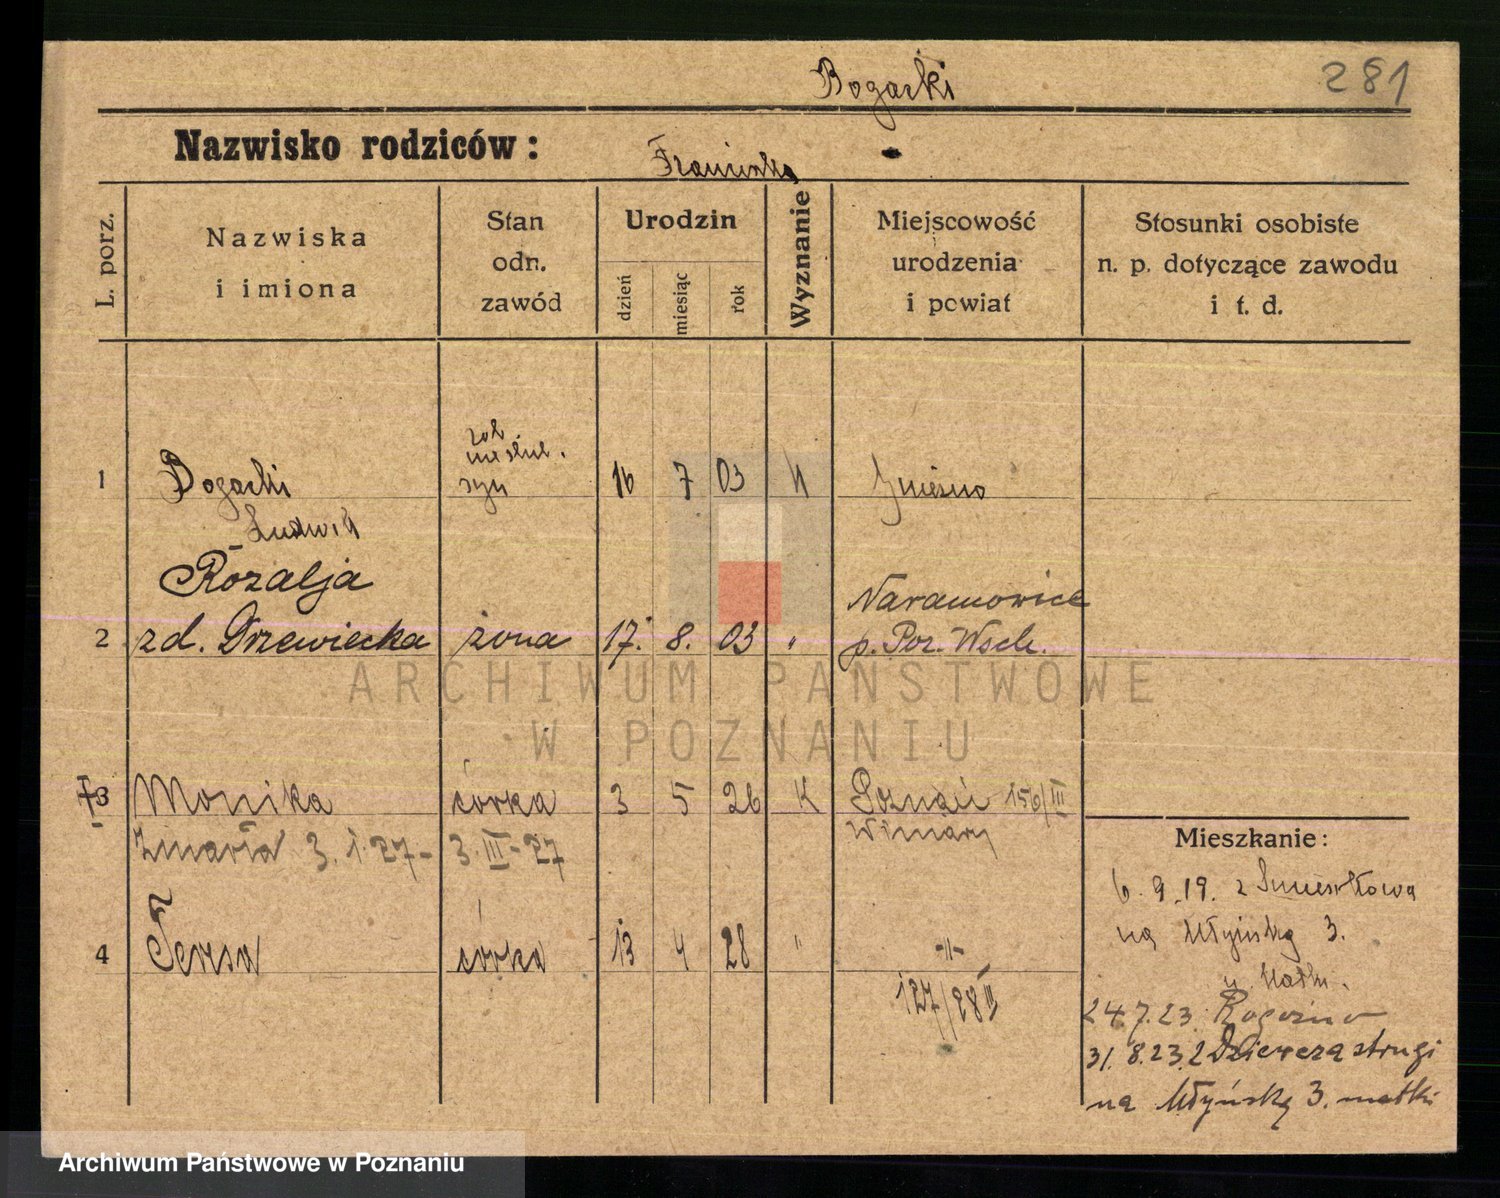 Bogacki
281
Nazwisko rodziców:
Franciszka
L. porz.
Nazwiska
i imiona
Stan
odn.
zawód
Urodzin
dzień
miesiąc
rok
Wyznanie
Miejscowość
urodzenia
i powiat
Stosunki osobiste
n. p. dotyczące zawodu
i t. d.
1 Bogacki nieślub. syn 16 7 03 K Gniezno
Ludwik
Rozalja Naramowice
2 zd. Drzewiecka żona 17. 8. 03 " p. Poz. Wsch.
3 Monika córka 3 5 26 K Poznań 156/III
Winiary
zmarła 3. 1. 27 - 3. III - 27
4 Teresa córka 13 4 28 " -"-
127/28 II
Mieszkanie:
6. 9. 19. z
na Młyńską 3.
u Matki.
24.7.23 Rogoźno
31.8.23. z Dziewcza strugi
na Młyńską 3. matki
ARCHIWUM PAŃSTWOWE
W POZNANIU
Archiwum Państwowe w Poznaniu